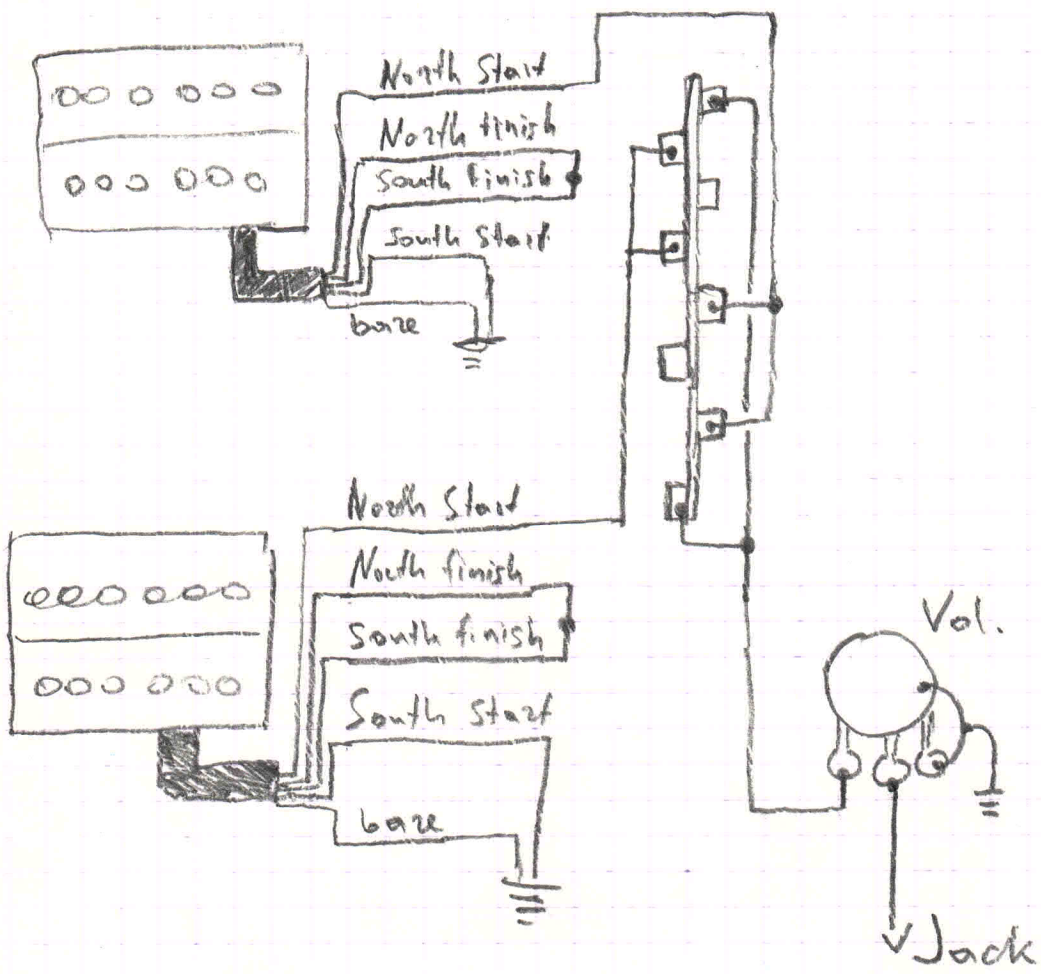 North Start
North finish
South finish
South Start
bare
North Start
North finish
South finish
South Start
bare
Vol.
Jack